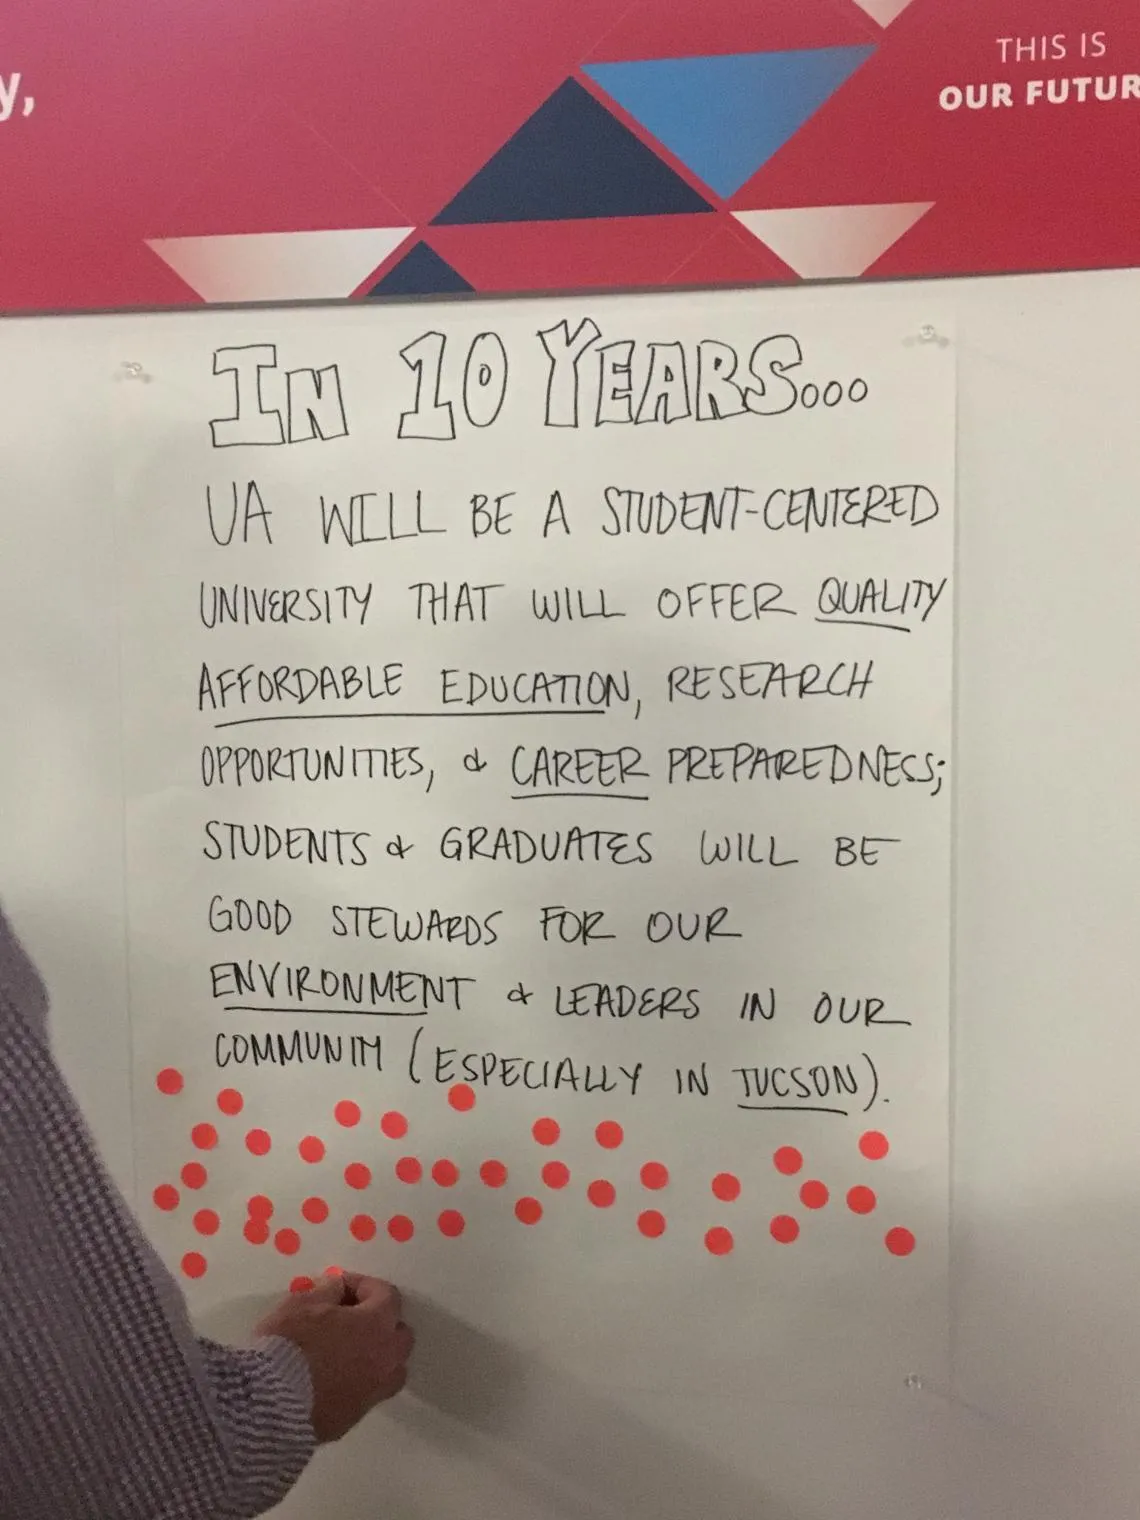 y,
THIS IS
OUR FUTUR
IN 10 YEARS...
UA WILL BE A STUDENT-CENTERED
UNIVERSITY THAT WILL OFFER QUALITY
AFFORDABLE EDUCATION, RESEARCH
OPPORTUNITIES, & CAREER PREPAREDNESS;
STUDENTS & GRADUATES WILL BE
GOOD STEWARDS FOR OUR
ENVIRONMENT & LEADERS IN OUR
COMMUNITY (ESPECIALLY IN TUCSON).